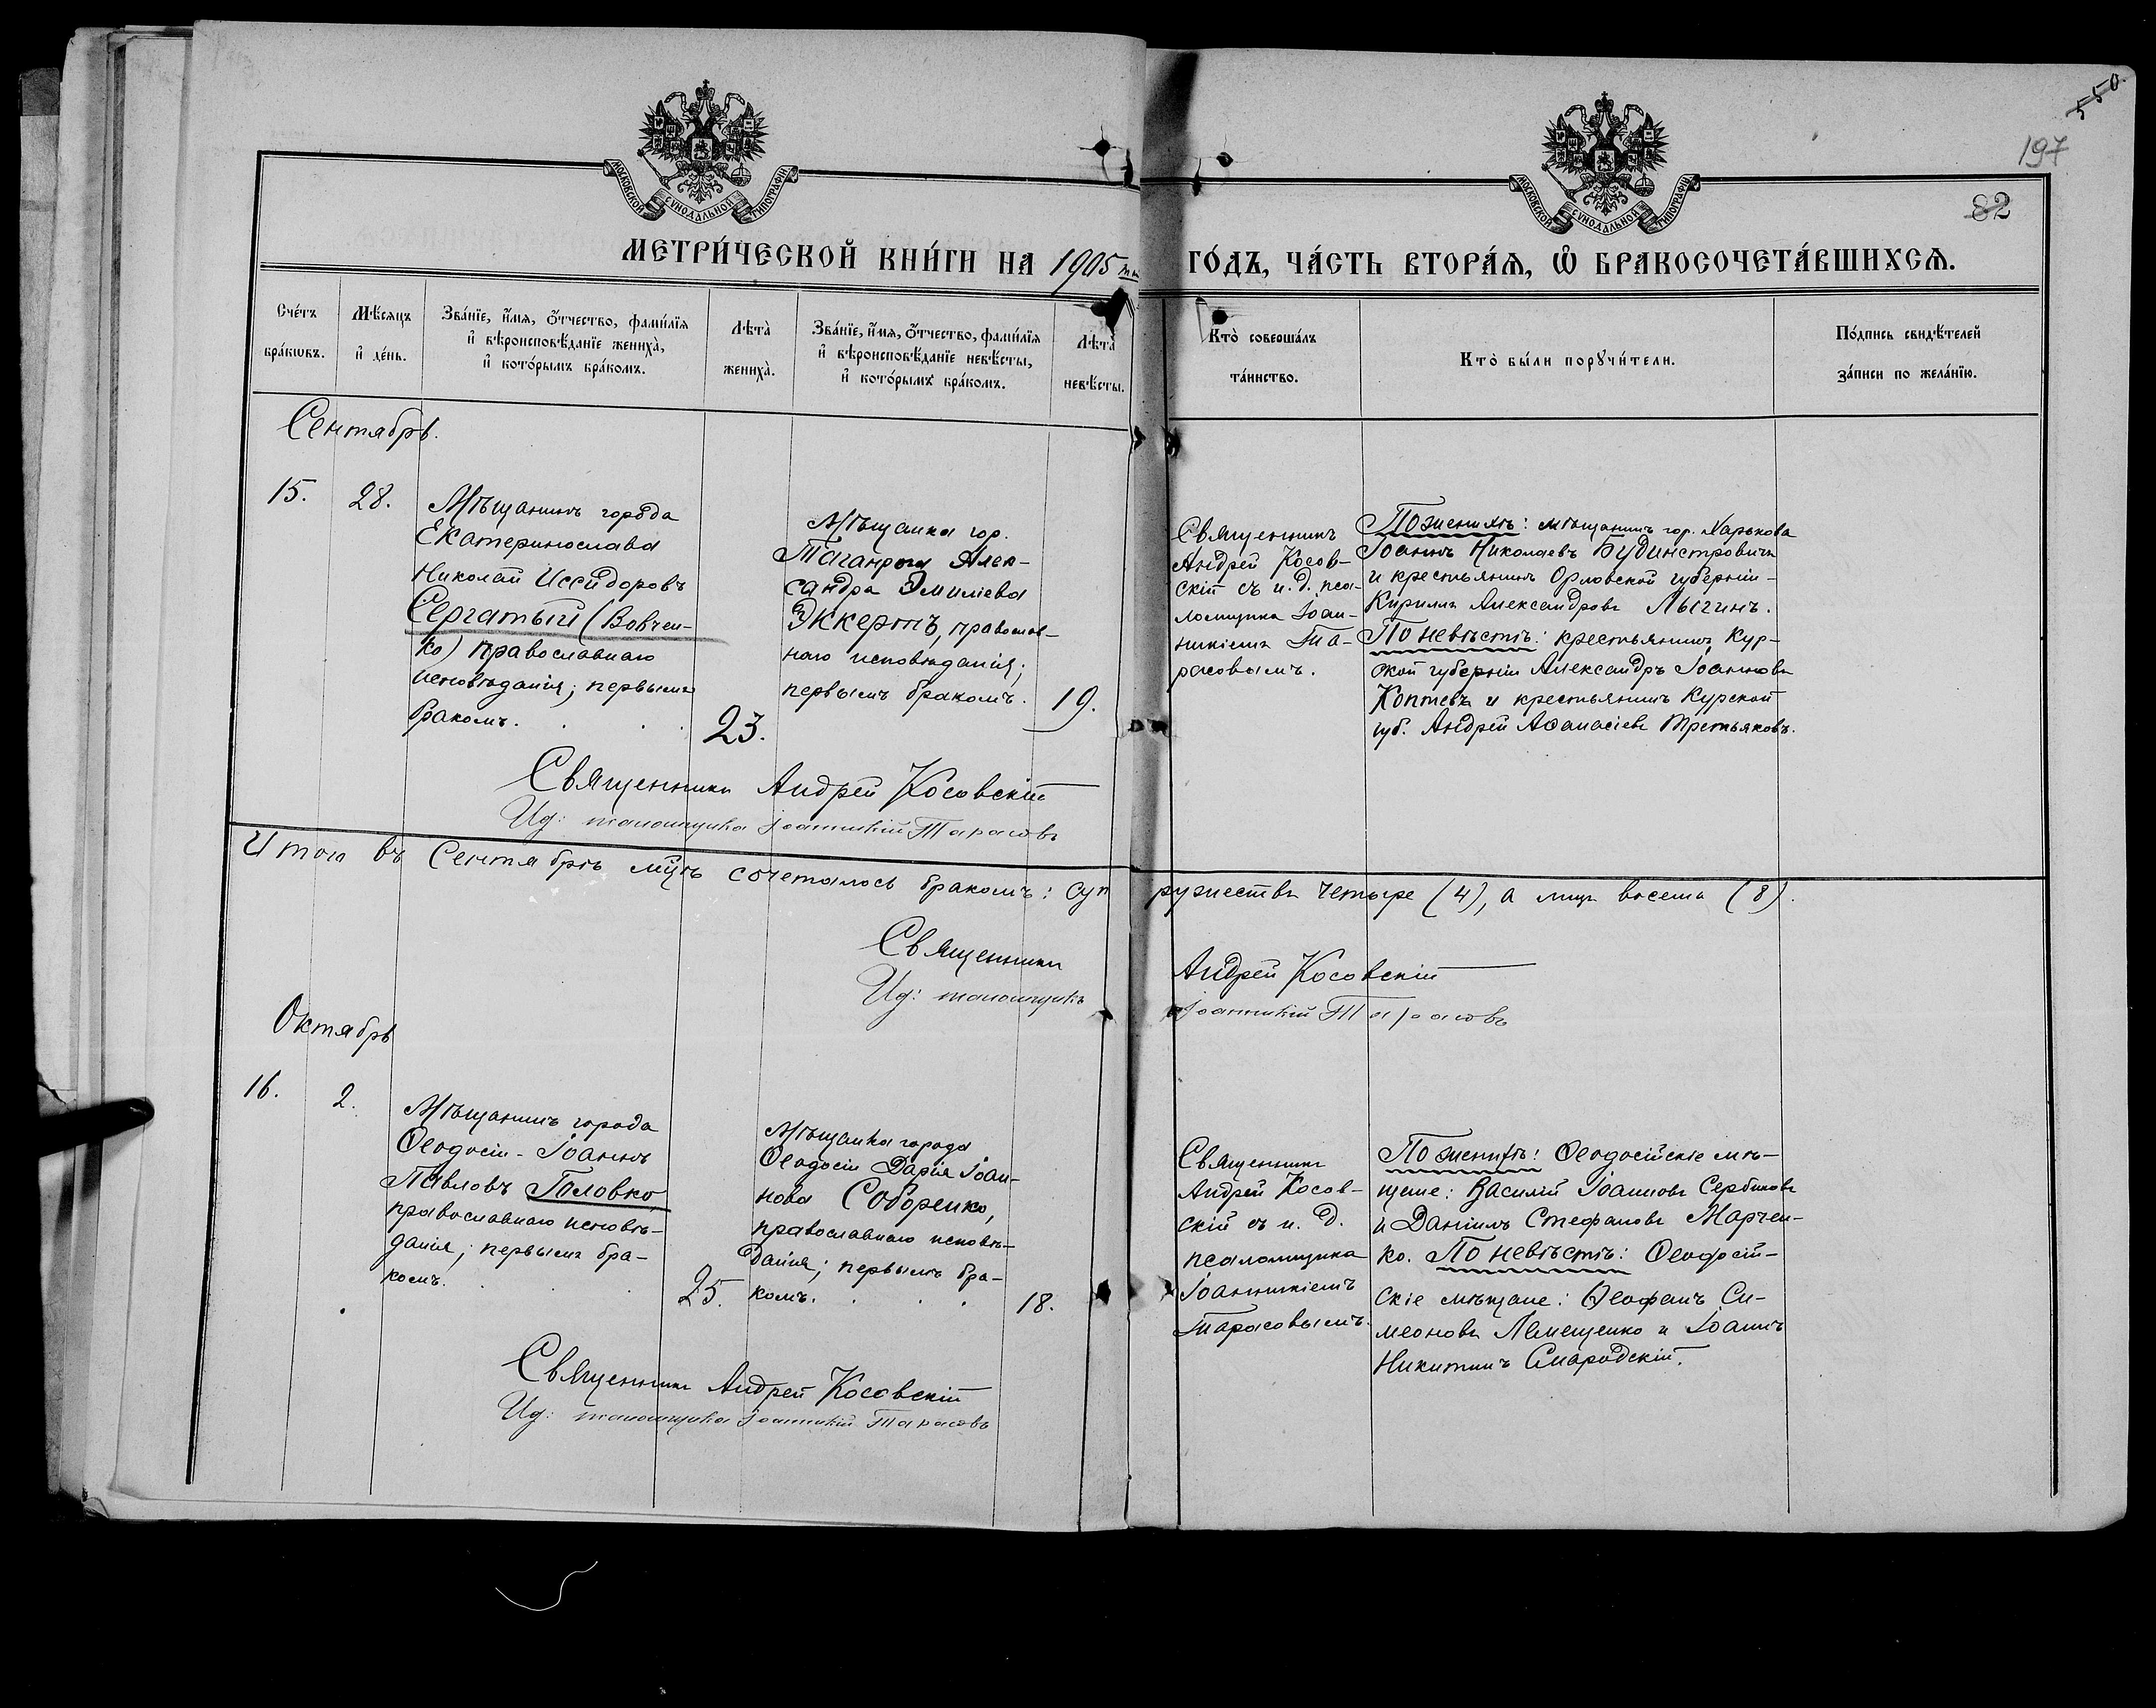 550
197
82
МОСКОВСКОЙ СѴНОДАЛЬНОЙ ТИПОГРАФІИ
МОСКОВСКОЙ СѴНОДАЛЬНОЙ ТИПОГРАФІИ
МЕТРИ́ЧЕСКОЙ КНИ́ГИ НА 1905 ГО́ДЪ, ЧА́СТЬ ВТОРА́Ѧ, Ѽ БРАКОСОЧЕТА́ВШИХСѦ.
Сче́тъ
бра́кѡвъ.
Мѣ́сяцъ
и҆ де́нь.
Зва́нїе, и҆́мя, ѻ҆́тчество, фами́лїя
и҆ вѣроисповѣ́данїе жениха̀,
и҆ кото́рымъ бра́комъ.
Лѣта̀
жениха̀.
Зва́нїе, и҆́мя, ѻ҆́тчество, фами́лїя
и҆ вѣроисповѣ́данїе невѣ́сты,
и҆ кото́рымъ бра́комъ.
Лѣта̀
невѣ́сты.
Кто̀ соверша́лъ
та́инство.
Кто̀ бы́ли порꙋчи́тели.
По́дпись свидѣ́телей
за́писи по жела́нїю.
Сентябрь.
15.
28.
Мѣщанинъ города
Екатеринослава
Николай Исидоровъ
Сергатый (Вовчен-
ко) православнаго
исповѣданія; первымъ
бракомъ.
23.
Мѣщанка гор.
Таганрога Алек-
сандра Эмиліева
Эккертъ, православ-
наго исповѣданія;
первымъ бракомъ.
19.
Священникъ
Андрей Косов-
скій съ и. д. пса-
ломщика Іоан-
никіемъ Та-
расовымъ.
По женихѣ: мѣщанинъ гор. Харькова
Іоаннъ Николаевъ Будинстровичъ
и крестьянинъ Орловской губерніи-
Кириллъ Александровъ Лыгинъ.
По невѣстѣ: крестьянинъ Кур-
ской губерніи Александръ Іоанновъ
Коптевъ и крестьянинъ Курской
губ. Андрей Аѳанасіевъ Третьяковъ.
Священникъ Андрей Косовскій
Ид: псаломщика Іоанникій Тарасовъ
Итого въ Сентябрѣ мцѣ сочеталось бракомъ: супружествъ четыре (4), а лицъ восемь (8).
Священникъ Андрей Косовскій
Ид: псаломщика Іоанникій Тарасовъ
Октябрь
16.
2.
Мѣщанинъ города
Ѳеодосіи - Іоаннъ
Павловъ Головко,
православнаго исповѣ-
данія; первымъ бра-
комъ.
25.
Мѣщанка города
Ѳеодосіи Дарія Іоан-
нова Соборенко,
православнаго исповѣ-
данія; первымъ бра-
комъ.
18.
Священникъ
Андрей Косов-
скій съ и. д.
псаломщика
Іоанникіемъ
Тарасовымъ.
По женихѣ: Ѳеодосійскіе мѣ-
щане: Василій Іоанновъ Сербиновъ
и Даніилъ Стефановъ Марчен-
ко. По невѣстѣ: Ѳеодосій-
скіе мѣщане: Ѳеофанъ Си-
меоновъ Лемещенко и Іоаннъ
Никитинъ Смародскій.
Священникъ Андрей Косовскій
Ид: псаломщика Іоанникій Тарасовъ